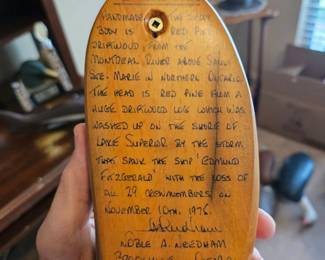 HANDMADE, THE BODY
BODY IS RED PINE
DRIFTWOOD, FROM THE
MONTREAL RIVER ABOVE SAULT
STE. MARIE IN NORTHERN ONTARIO.
THE HEAD IS RED PINE FROM A
HUGE DRIFTWOOD LOG WHICH WAS
WASHED UP ON THE SHORE OF
LAKE SUPERIOR BY THE STORM
THAT SANK THE SHIP 'EDMUND
FITZGERALD' WITH THE LOSS OF
ALL 29 CREWMEMBERS, ON
NOVEMBER 10TH, 1975.
NOBLE A. NEEDHAM